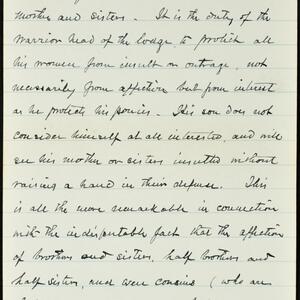 mother and sisters. It is the duty of the
warrior head of the lodge, to protect all
his women from insult or outrage, not
necessarily from affection but from interest
as he protects his ponies. This son does not
consider himself at all interested, and will
see his mother or sisters insulted without
raising a hand in their defense. This
is all the more remarkable in connection
with the indisputable fact that the affection
of brothers and sisters, half brothers and
half sisters, and even cousins (who are